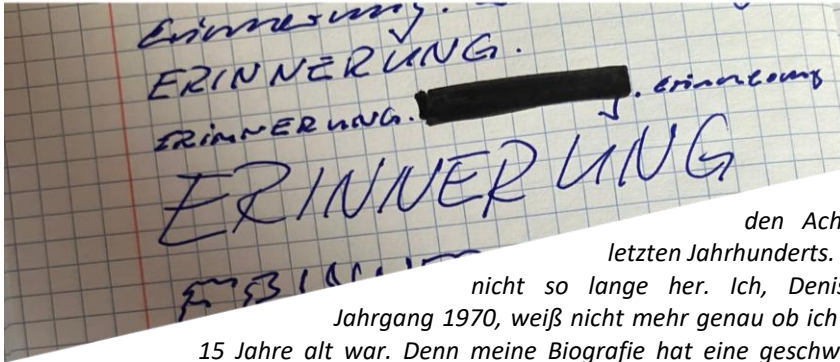 Erinnerung.
ERINNERUNG.
ERINNERUNG. erinnerung
ERINNERUNG
den Ach
letzten Jahrhunderts.
nicht so lange her. Ich, Denis
Jahrgang 1970, weiß nicht mehr genau ob ich
15 Jahre alt war. Denn meine Biografie hat eine geschw